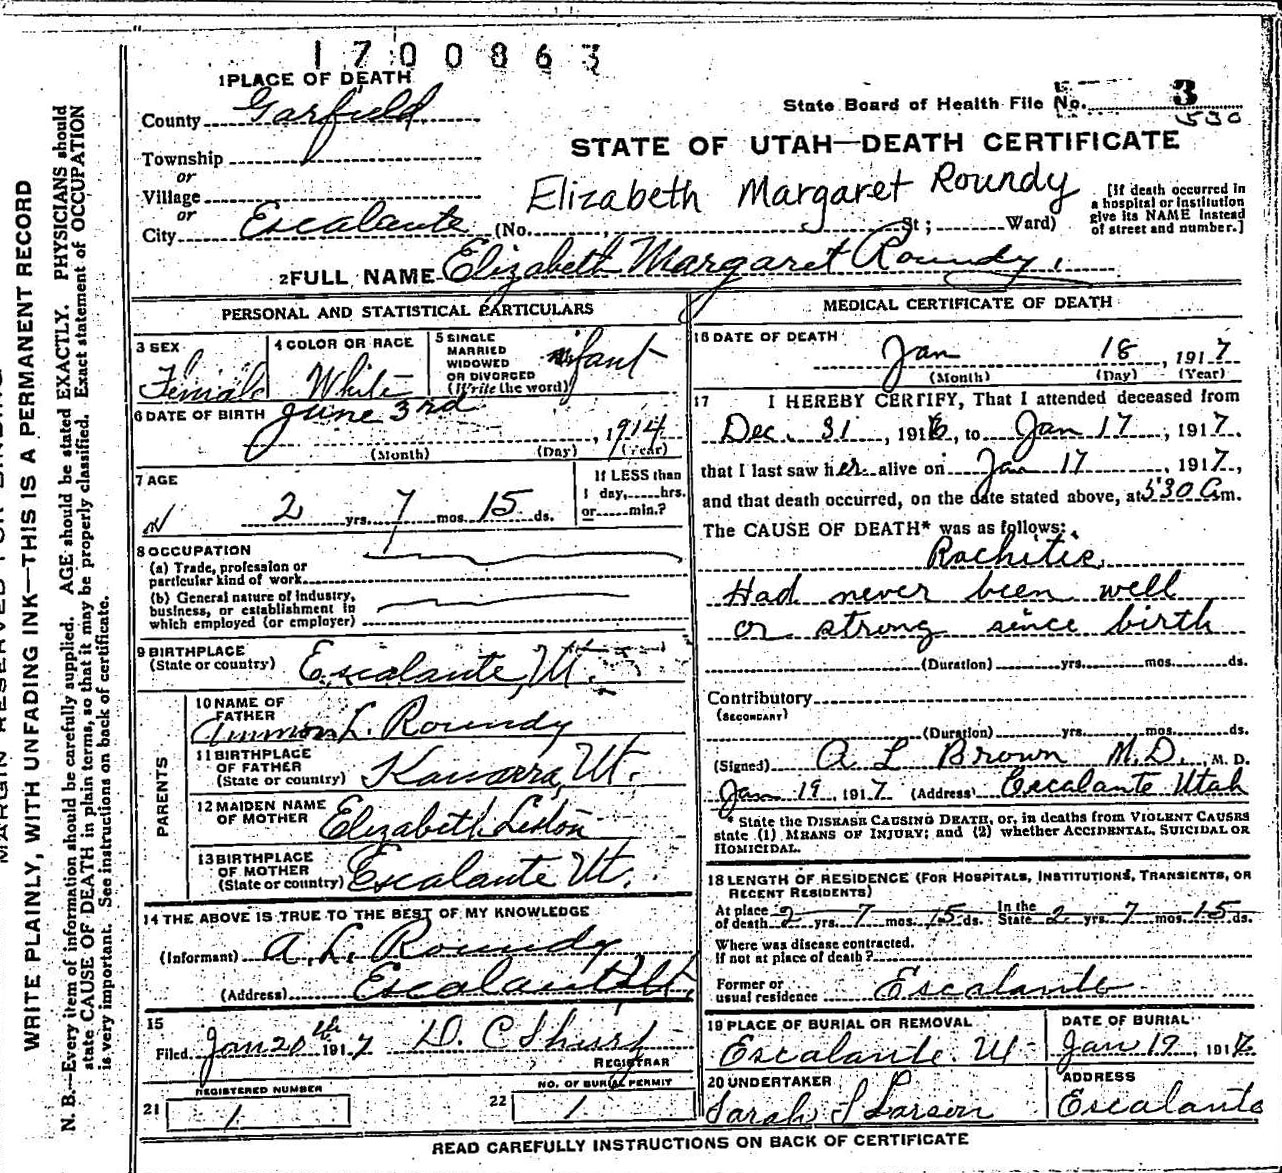 1700863
1 PLACE OF DEATH
County Garfield
State Board of Health File No. 3
530
Township
or
Village
or
City Escalante (No. , St; Ward)
STATE OF UTAH—DEATH CERTIFICATE
Elizabeth Margaret Roundy
[If death occurred in
a hospital or institution
give its NAME instead
of street and number.]
2 FULL NAME Elizabeth Margaret Roundy
PERSONAL AND STATISTICAL PARTICULARS
3 SEX
Female
4 COLOR OR RACE
White
5 SINGLE
MARRIED
WIDOWED
OR DIVORCED
(Write the word)
infant
6 DATE OF BIRTH June 3rd, 1914
(Month) (Day) (Year)
7 AGE
2 yrs. 7 mos. 15 ds.
If LESS than
1 day, hrs.
or min.?
8 OCCUPATION
(a) Trade, profession or
particular kind of work
(b) General nature of industry,
business, or establishment in
which employed (or employer)
9 BIRTHPLACE
(State or country) Escalante, Ut.
PARENTS
10 NAME OF
FATHER
Ammon L. Roundy
11 BIRTHPLACE
OF FATHER
(State or country) Kanarra, Ut.
12 MAIDEN NAME
OF MOTHER Elizabeth Liston
13 BIRTHPLACE
OF MOTHER
(State or country) Escalante Ut.
14 THE ABOVE IS TRUE TO THE BEST OF MY KNOWLEDGE
(Informant) A. L. Roundy
(Address) Escalante Ut.
15
Filed Jan 20th 1917 D. C.
REGISTRAR
21 REGISTERED NUMBER
1
22 NO. OF BURIAL PERMIT
1
MEDICAL CERTIFICATE OF DEATH
16 DATE OF DEATH
Jan 18, 1917
(Month) (Day) (Year)
17 I HEREBY CERTIFY, That I attended deceased from
Dec. 31, 1916, to Jan 17, 1917.
that I last saw her alive on Jan 17, 1917,
and that death occurred, on the date stated above, at 530 a m.
The CAUSE OF DEATH* was as follows:
Rachitis.
Had never been well
or strong since birth
(Duration) yrs. mos. ds.
Contributory
(SECONDARY)
(Duration) yrs. mos. ds.
(Signed) A L Brown M.D., M. D.
Jan 19 1917 (Address) Escalante Utah
* State the DISEASE CAUSING DEATH, or, in deaths from VIOLENT CAUSES
state (1) MEANS OF INJURY; and (2) whether ACCIDENTAL, SUICIDAL OR
HOMICIDAL.
18 LENGTH OF RESIDENCE (FOR HOSPITALS, INSTITUTIONS, TRANSIENTS, OR
RECENT RESIDENTS)
At place
of death 2 yrs. 7 mos. 15 ds. In the
State 2 yrs. 7 mos. 15 ds.
Where was disease contracted.
If not at place of death?
Former or
usual residence Escalante
19 PLACE OF BURIAL OR REMOVAL
Escalante. Ut
DATE OF BURIAL
Jan 19, 1917
20 UNDERTAKER
Sarah S Larson
ADDRESS
Escalante
READ CAREFULLY INSTRUCTIONS ON BACK OF CERTIFICATE
WRITE PLAINLY, WITH UNFADING INK—THIS IS A PERMANENT RECORD
N. B.—Every item of information should be carefully supplied. AGE should be stated EXACTLY. PHYSICIANS should
state CAUSE OF DEATH in plain terms, so that it may be properly classified. Exact statement of OCCUPATION
is very important. See instructions on back of certificate.